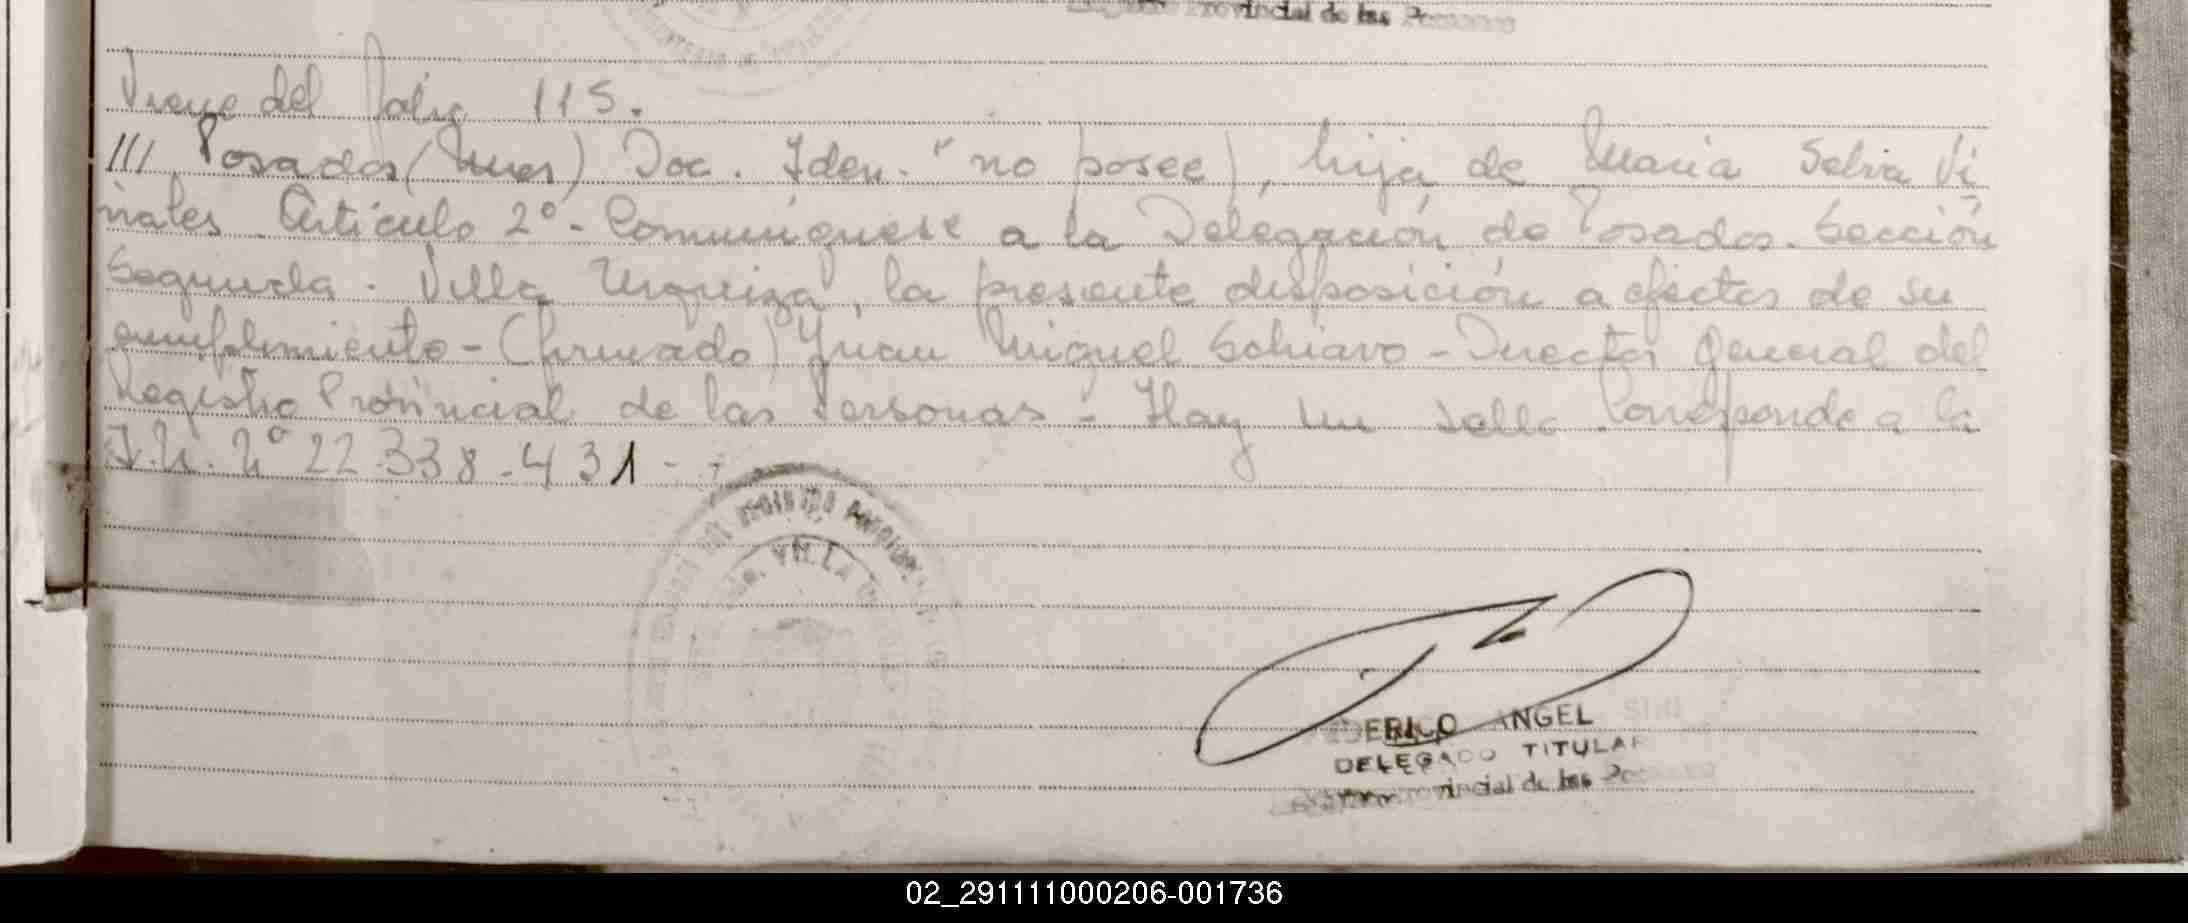 Provincial de las Personas
Viene del folio 115.
/// Posadas (Mnes) Doc. Iden. "no posee), hija de María Selva Vi
ñales. Artículo 2º- Comuníquese a la Delegación de Posadas. Sección
Segunda. Villa Urquiza, la presente disposición a efectos de su
cumplimiento - (firmado) Juan Miguel Schiavo - Director General del
Registro Provincial de las Personas - Hay un sello Corresponde a la
I.N. Nº 22.338.431 -
VILLA
DERICO ANGEL
DELEGADO TITULAR
Provincial de las Personas
02_291111000206-001736